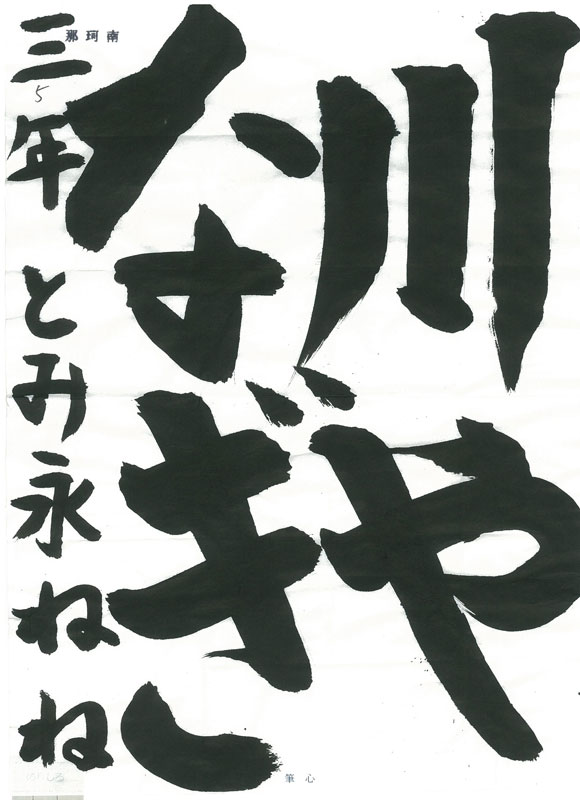 川や
なぎ
三年とみ永ねね
5
南珂那
心筆